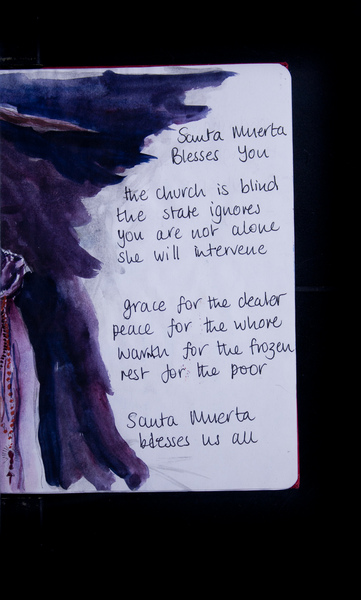 Santa Muerta
Blesses You
the church is blind
the state ignores
you are not alone
she will intervene
grace for the dealer
peace for the whore
warmth for the frozen
rest for the poor
Santa Muerta
blesses us all